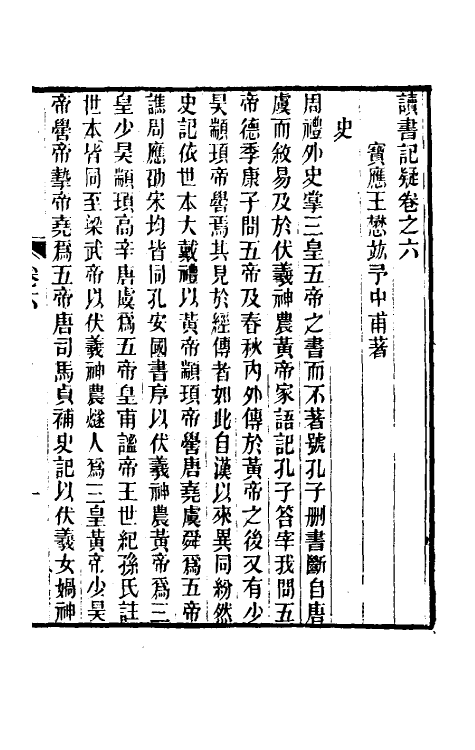 讀書記疑卷之六
寶應王懋竑予中甫著
史
周禮外史掌三皇五帝之書而不著號孔子刪書斷自唐
虞而敘易及於伏羲神農黃帝家語記孔子答宰我問五
帝德季康子問五帝及春秋內外傳於黃帝之後又有少
昊顓頊帝嚳焉其見於經傳者如此自漢以來異同紛然
史記依世本大戴禮以黃帝顓頊帝嚳唐堯虞舜爲五帝
譙周應劭宋均皆同孔安國書序以伏羲神農黃帝爲三
皇少昊顓頊高辛唐虞爲五帝皇甫謐帝王世紀孫氏註
世本皆同至梁武帝以伏羲神農燧人爲三皇黃帝少昊
帝嚳帝摯帝堯爲五帝唐司馬貞補史記以伏羲女媧神
卷六
一